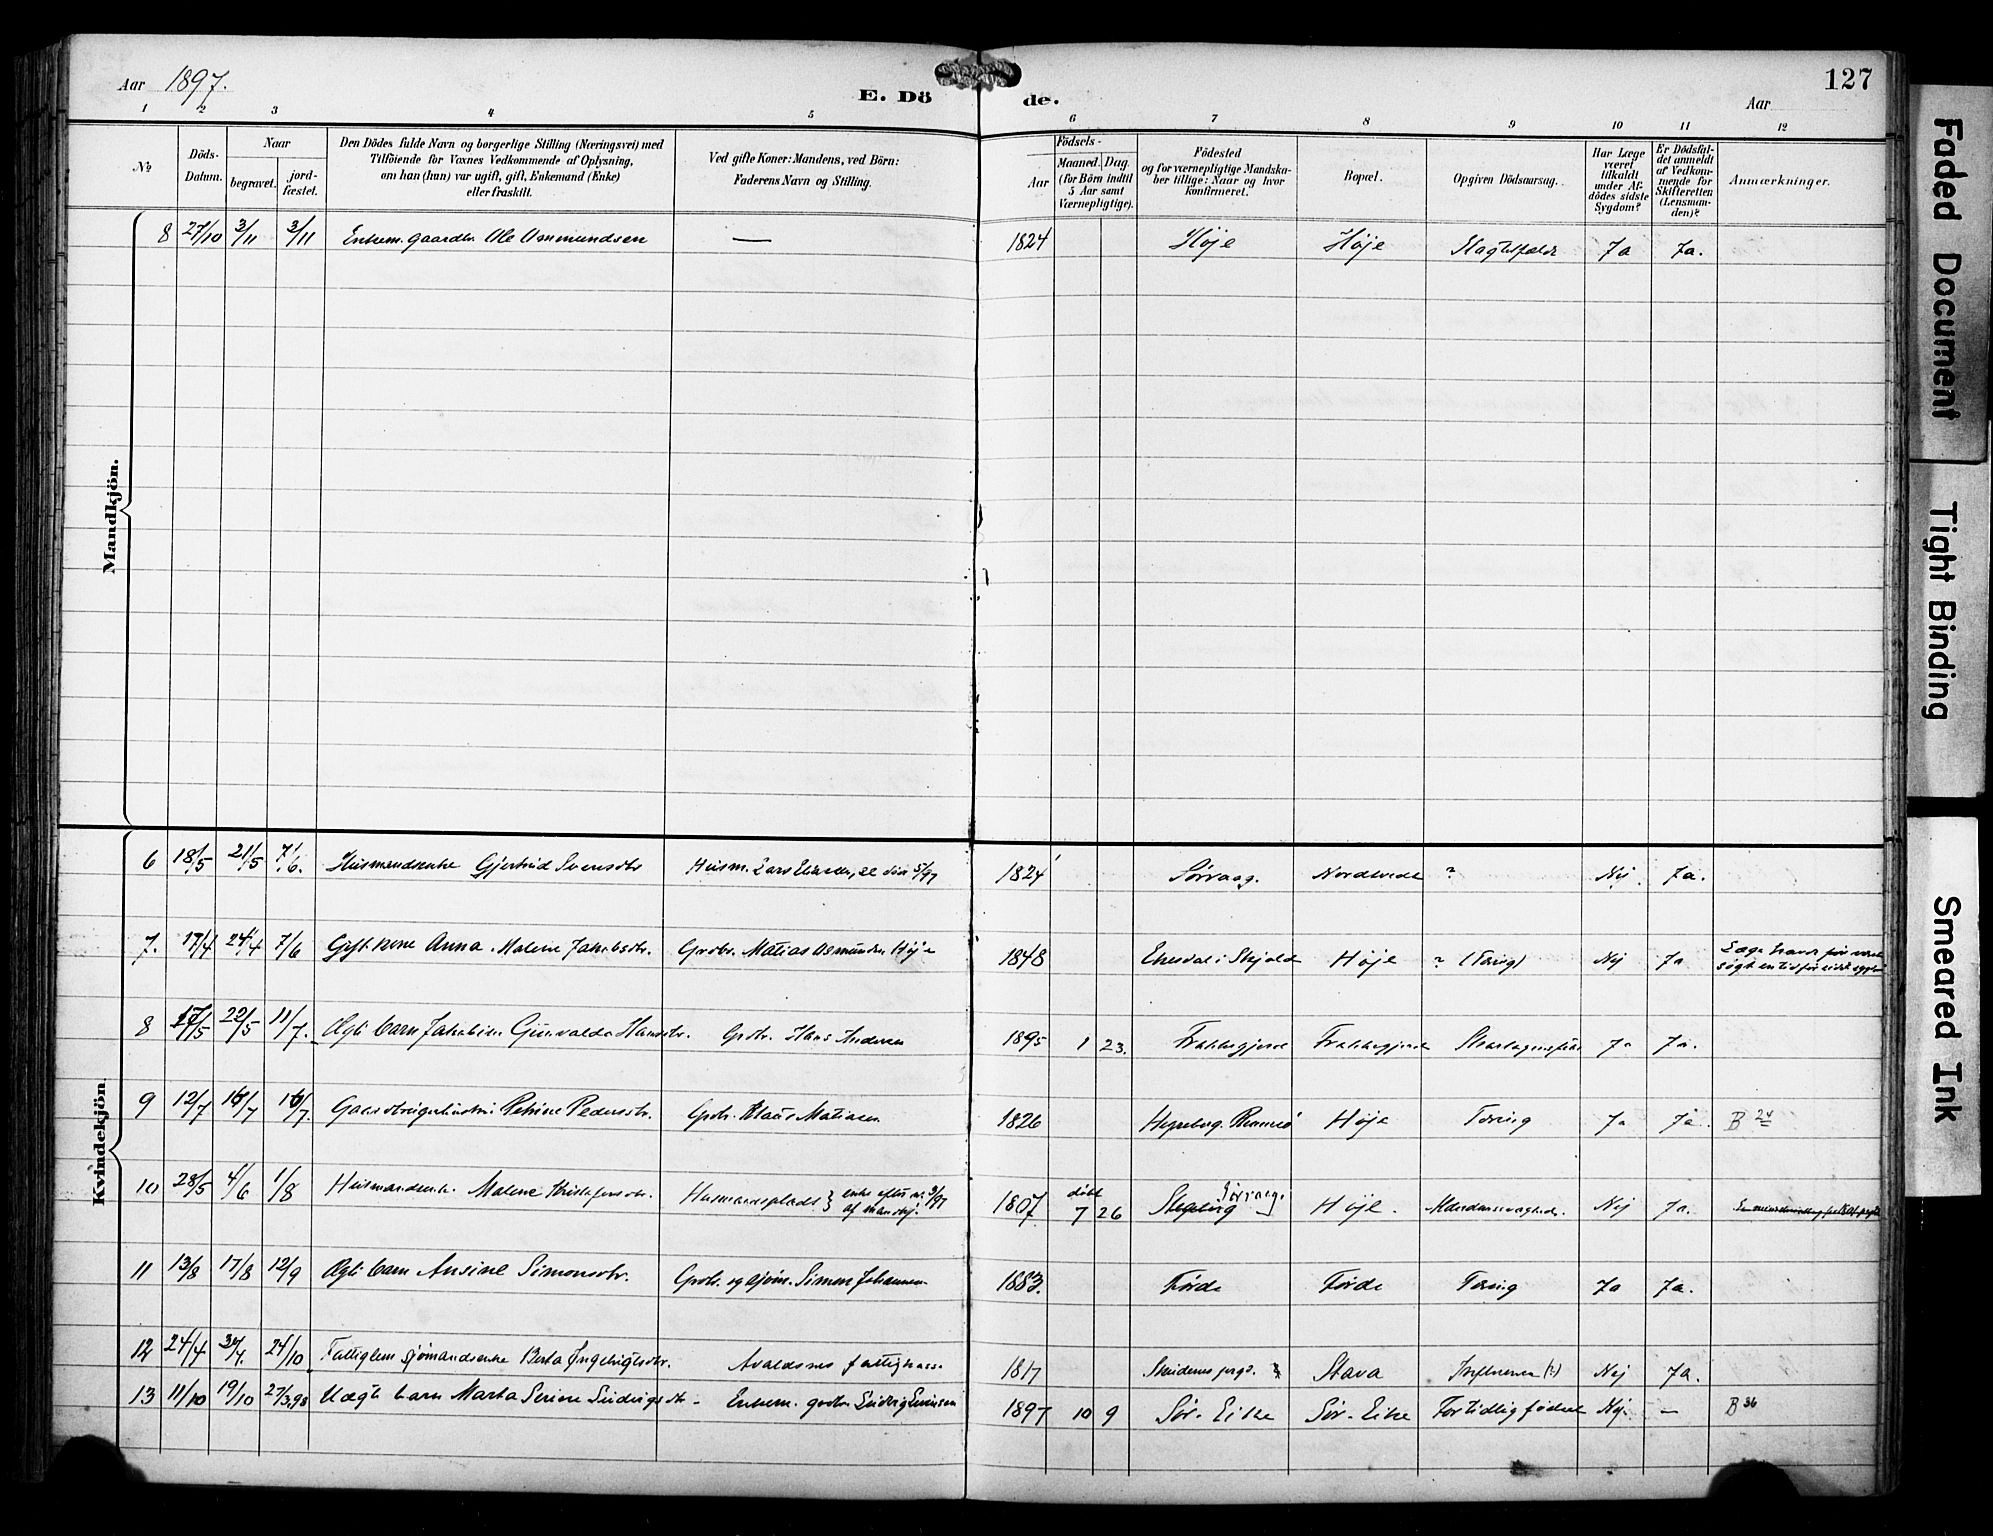 Aar 1897.
E. Dö de.
Aar
127
1 2 3 4 5 6 7 8 9 10 11 12
No
Döds-
Datum.
Naar
begravet.
jord-
fæstet.
Den Dödes fulde Navn og borgerlige Stilling (Næringsvei) med
Tilföiende for Voxnes Vedkommende af Oplysning,
om han (hun) var ugift, gift, Enkemand (Enke)
eller fraskilt.
Ved gifte Koner: Mandens, ved Börn:
Faderens Navn og Stilling.
Födsels-
Aar
Maaned. Dag.
(for Börn indtil
5 Aar samt
Værnepligtige).
Födested
og for værnepligtige Mandska-
ber tillige: Naar og hvor
konfirmeret.
Bopæl.
Opgiven Dödsaarsag.
Har Læge
været
tilkaldt
under Af-
dödes sidste
Sygdom?
Er Dödsfal-
det anmeldt
af Vedkom-
mende for
Skifteretten
(Lensman-
den)?
Anmærkninger.
Mandkjön.
8 27/10 3/11 3/11 Enkem. gaardbr. Ole Ommundsen — 1824 Høje Høje Slagtilfælde Ja Ja.
Kvindekjön.
6 18/5 21/5 7/6. Husmandsenke Gjertrud Svensdtr Husm. Lars 1824 Sørvaag. ? Nej. Ja.
7. 17/4 24/4 7/6 Gift kone Anna Malene Jakobsdtr. Grdbr. Matias Asmundsn Høje 1848 i Skjold Høje ? (Tæring) Nej Ja
8 17/5 22/5 11/7. Ægte barn Gunvalda Hansdtr. Grdbr. Hans Andersen 1895 1 23. Frakkagjerd Frakkagjerd Ja Ja.
9 12/7 16/7 16/7 Petrine Pedersdtr. Grdbr. Klaus Matiasen 1826 Rennesø Høje Tæring Ja Ja. B 24
10 28/5 4/6 1/8 Husmandsenke Malene Kristofersdtr. Husmandsplads } enke efter 1807 døbt 7 26 Sørvaag. Høje. Nej Ja.
11 13/8 17/8 12/9 Ægte barn Ansine Simonsdtr. Grdbr. og sjøm. Simon Johannesen 1883. Førde Førde Tæring Ja Ja.
12 24/4 30/4. 24/10 Fattiglem sjømandsenke Berta Ingebrigtsdtr. Avaldsnes fattigkasse 1817 Skudenes prgd. Stava Influensa (?) Nej Ja.
13 11/10 19/10 27/3.98 Uægte barn Marta Serine Ludvigsdtr. Enkem. grdbr. Ludvig 1897 10 9 Sør-Eike Sør-Eike For tidlig fødsel Nej. — B 36
Faded Document
Tight Binding
Smeared Ink